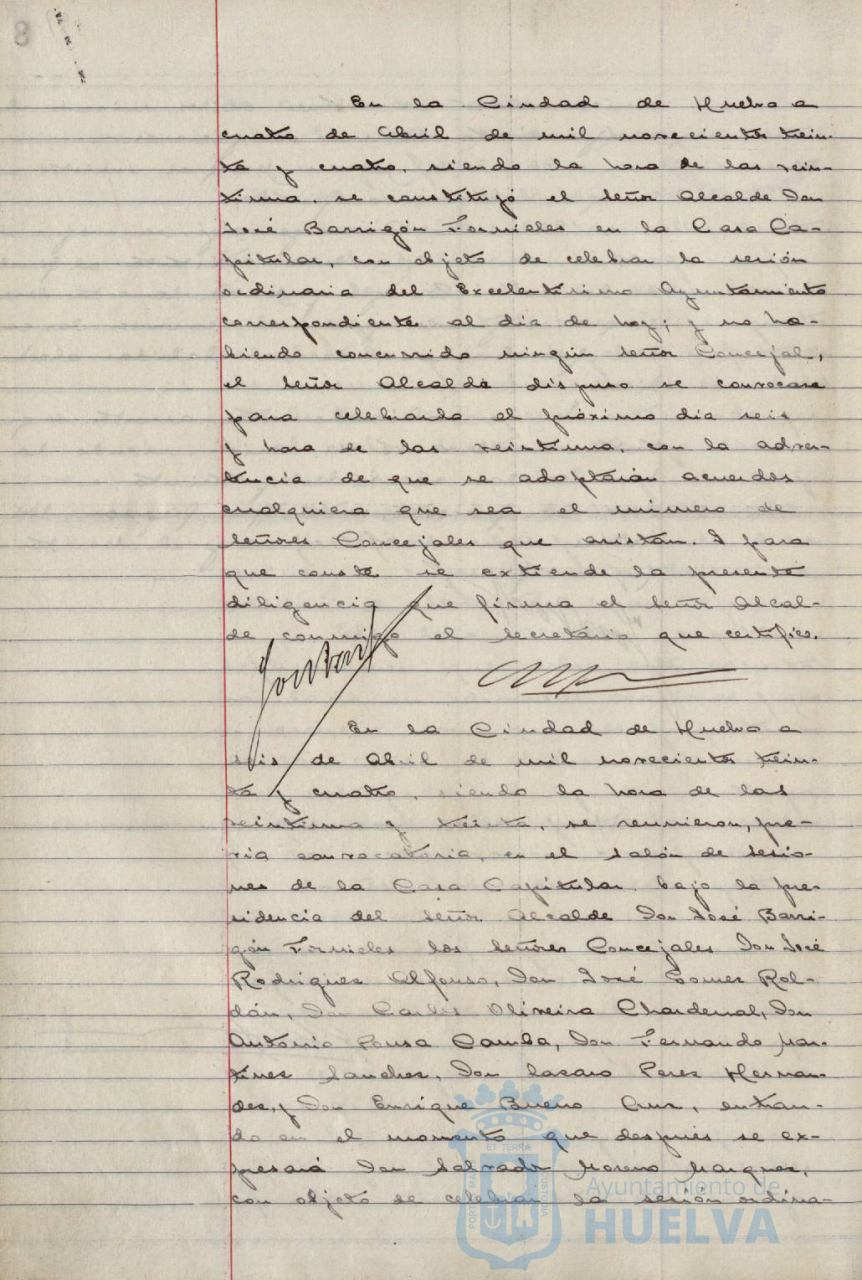 8
En la Ciudad de Huelva a
cuatro de Abril de mil novecientos trein-
ta y cuatro, siendo la hora de las vein-
tiuna, se constituyó el señor Alcalde Don
José Barrigón Fornieles en la Casa Ca-
pitular, con objeto de celebrar la sesión
ordinaria del Excelentísimo Ayuntamiento
correspondiente al dia de hoy; y no ha-
biendo concurrido ningún señor Concejal,
el señor Alcalde dispuso se convocase
para celebrarla el próximo dia seis
y hora de las veintiuna, con la adver-
tencia de que se adoptarán acuerdos
cualquiera que sea el número de
señores Concejales que asistan. I para
que conste se extiende la presente
diligencia que firma el señor Alcal-
de conmigo el secretario que certifico.
En la Ciudad de Huelva a
seis de Abril de mil novecientos trein-
ta y cuatro, siendo la hora de las
veintiuna y treinta, se reunieron, pre-
via convocatoria, en el salón de sesio-
nes de la Casa Capitular, bajo la pre-
sidencia del señor Alcalde Don José Barri-
gón Fornieles los señores Concejales Don José
Rodriguez Alfonso, Don José Gomez Rol-
dán, Don Carlos Oliveira Chardenal, Don
Antonio Pousa Camba, Don Fernando Mar-
tinez Sanchez, Don Lazaro Perez Hernan-
dez, y Don Enrique Bueno Cruz, entran-
do en el momento que después se ex-
presará Don Salvador Moreno Marquez,
con objeto de celebrar la sesión ordina-
Ayuntamiento de
HUELVA